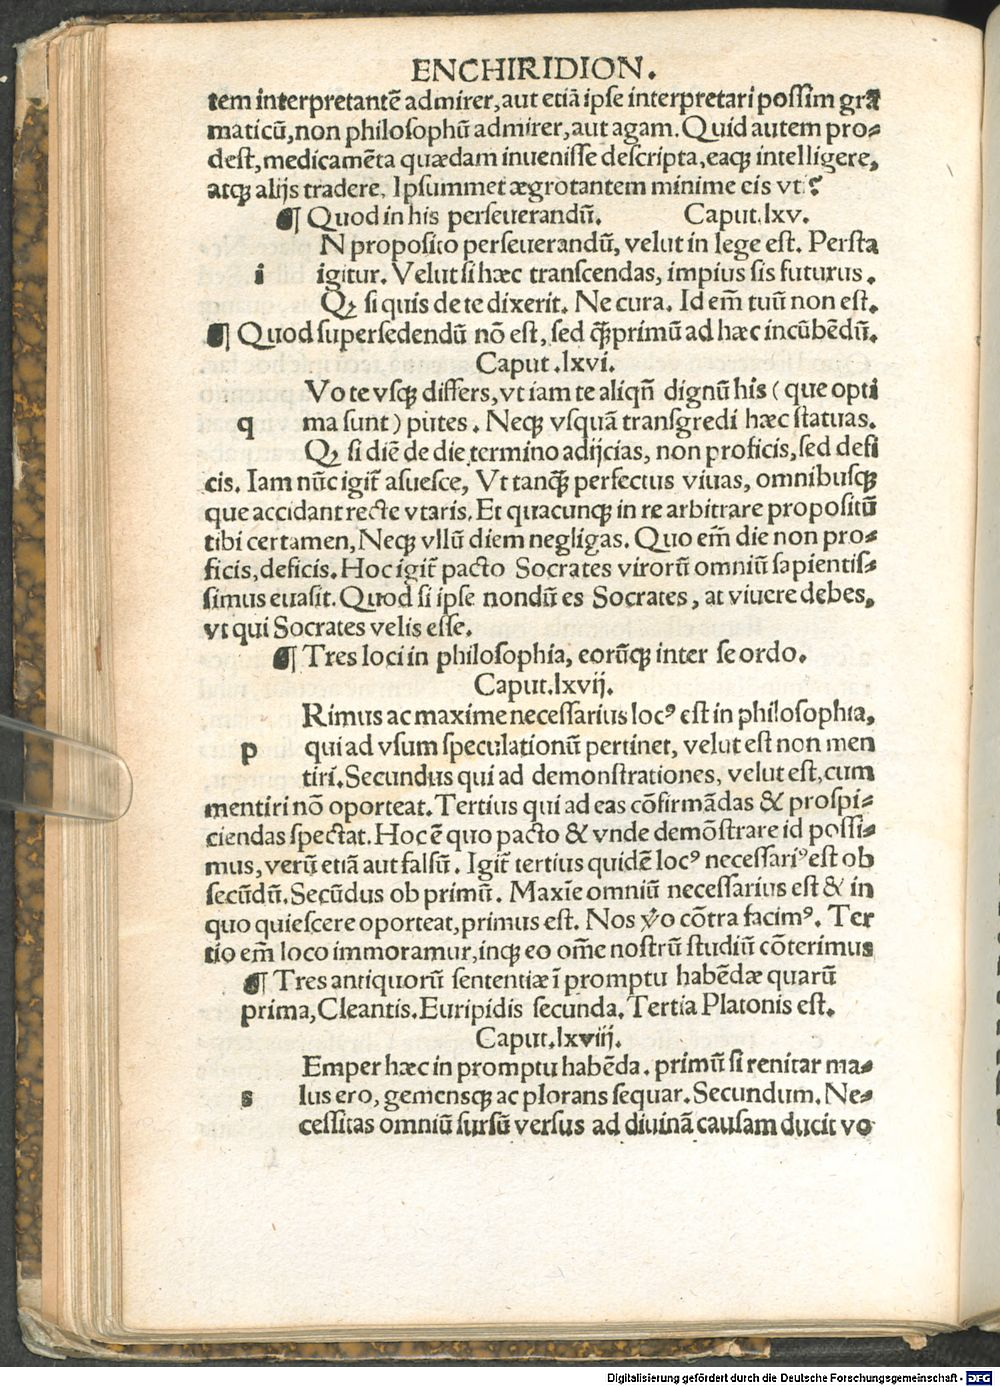 ENCHIRIDION.
tem interpretantē admirer, aut etiā ipse interpretari possim grā
maticū, non philosophū admirer, aut agam. Quid autem pro-
dest, medicamēta quædam inuenisse descripta, eaqꝫ intelligere,
atqꝫ alijs tradere. Ipsummet ægrotantem minime eis vti?
¶ Quod in his perseuerandū. Caput.lxv.
N proposito perseuerandū, velut in lege est. Persta
i igitur. Velut si hæc transcendas, impius sis futurus.
Qꝫ si quis de te dixerit. Ne cura. Id em̄ tuū non est.
¶ Quod supersedendū nō est, sed q̄̄primū ad hæc incūbēdū.
Caput .lxvi.
Vo te vsqꝫ differs, vt iam te aliqn̄ dignū his (que opti
q ma sunt) putes. Neqꝫ vsquā transgredi hæc statuas.
Qꝫ si diē de die termino adijcias, non proficis, sed defi
cis. Iam nūc igit̄ asuesce, Vt tanq̄̄ perfectus viuas, omnibusqꝫ
que accidant recte vtaris. Et quacunqꝫ in re arbitrare propositū
tibi certamen, Neqꝫ vllū diem negligas. Quo em̄ die non pro-
ficis, deficis. Hoc igit̄ pacto Socrates virorū omniū sapientis-
simus euasit. Quod si ipse nondū es Socrates, at viuere debes,
vt qui Socrates velis esse.
¶ Tres loci in philosophia, eorūqꝫ inter se ordo.
Caput.lxvij.
Rimus ac maxime necessarius locꝰ est in philosophia,
p qui ad vsum speculationū pertinet, velut est non men
tiri. Secundus qui ad demonstrationes, velut est, cum
mentiri nō oporteat. Tertius qui ad eas cōfirmādas & prospi-
ciendas spectat. Hoc ē quo pacto & vnde demōstrare id possi-
mus, verū etiā aut falsū. Igit̄ tertius quidē locꝰ necessariꝰ est ob
secūdū. Secūdus ob primū. Maxīe omniū necessarius est & in
quo quiescere oporteat, primus est. Nos v̄o cōtra facimꝰ. Ter
tio em̄ loco immoramur, inqꝫ eo om̄e nostrū studiū cōterimus
¶ Tres antiquorū sententiæ ī promptu habēdæ quarū
prima, Cleantis. Euripidis secunda. Tertia Platonis est.
Caput.lxviij.
Emper hæc in promptu habēda. primū si renitar ma-
s lus ero, gemensqꝫ ac plorans sequar. Secundum. Ne-
cessitas omniū sursū versus ad diuinā causam ducit vo
Digitalisierung gefördert durch die Deutsche Forschungsgemeinschaft - DFG